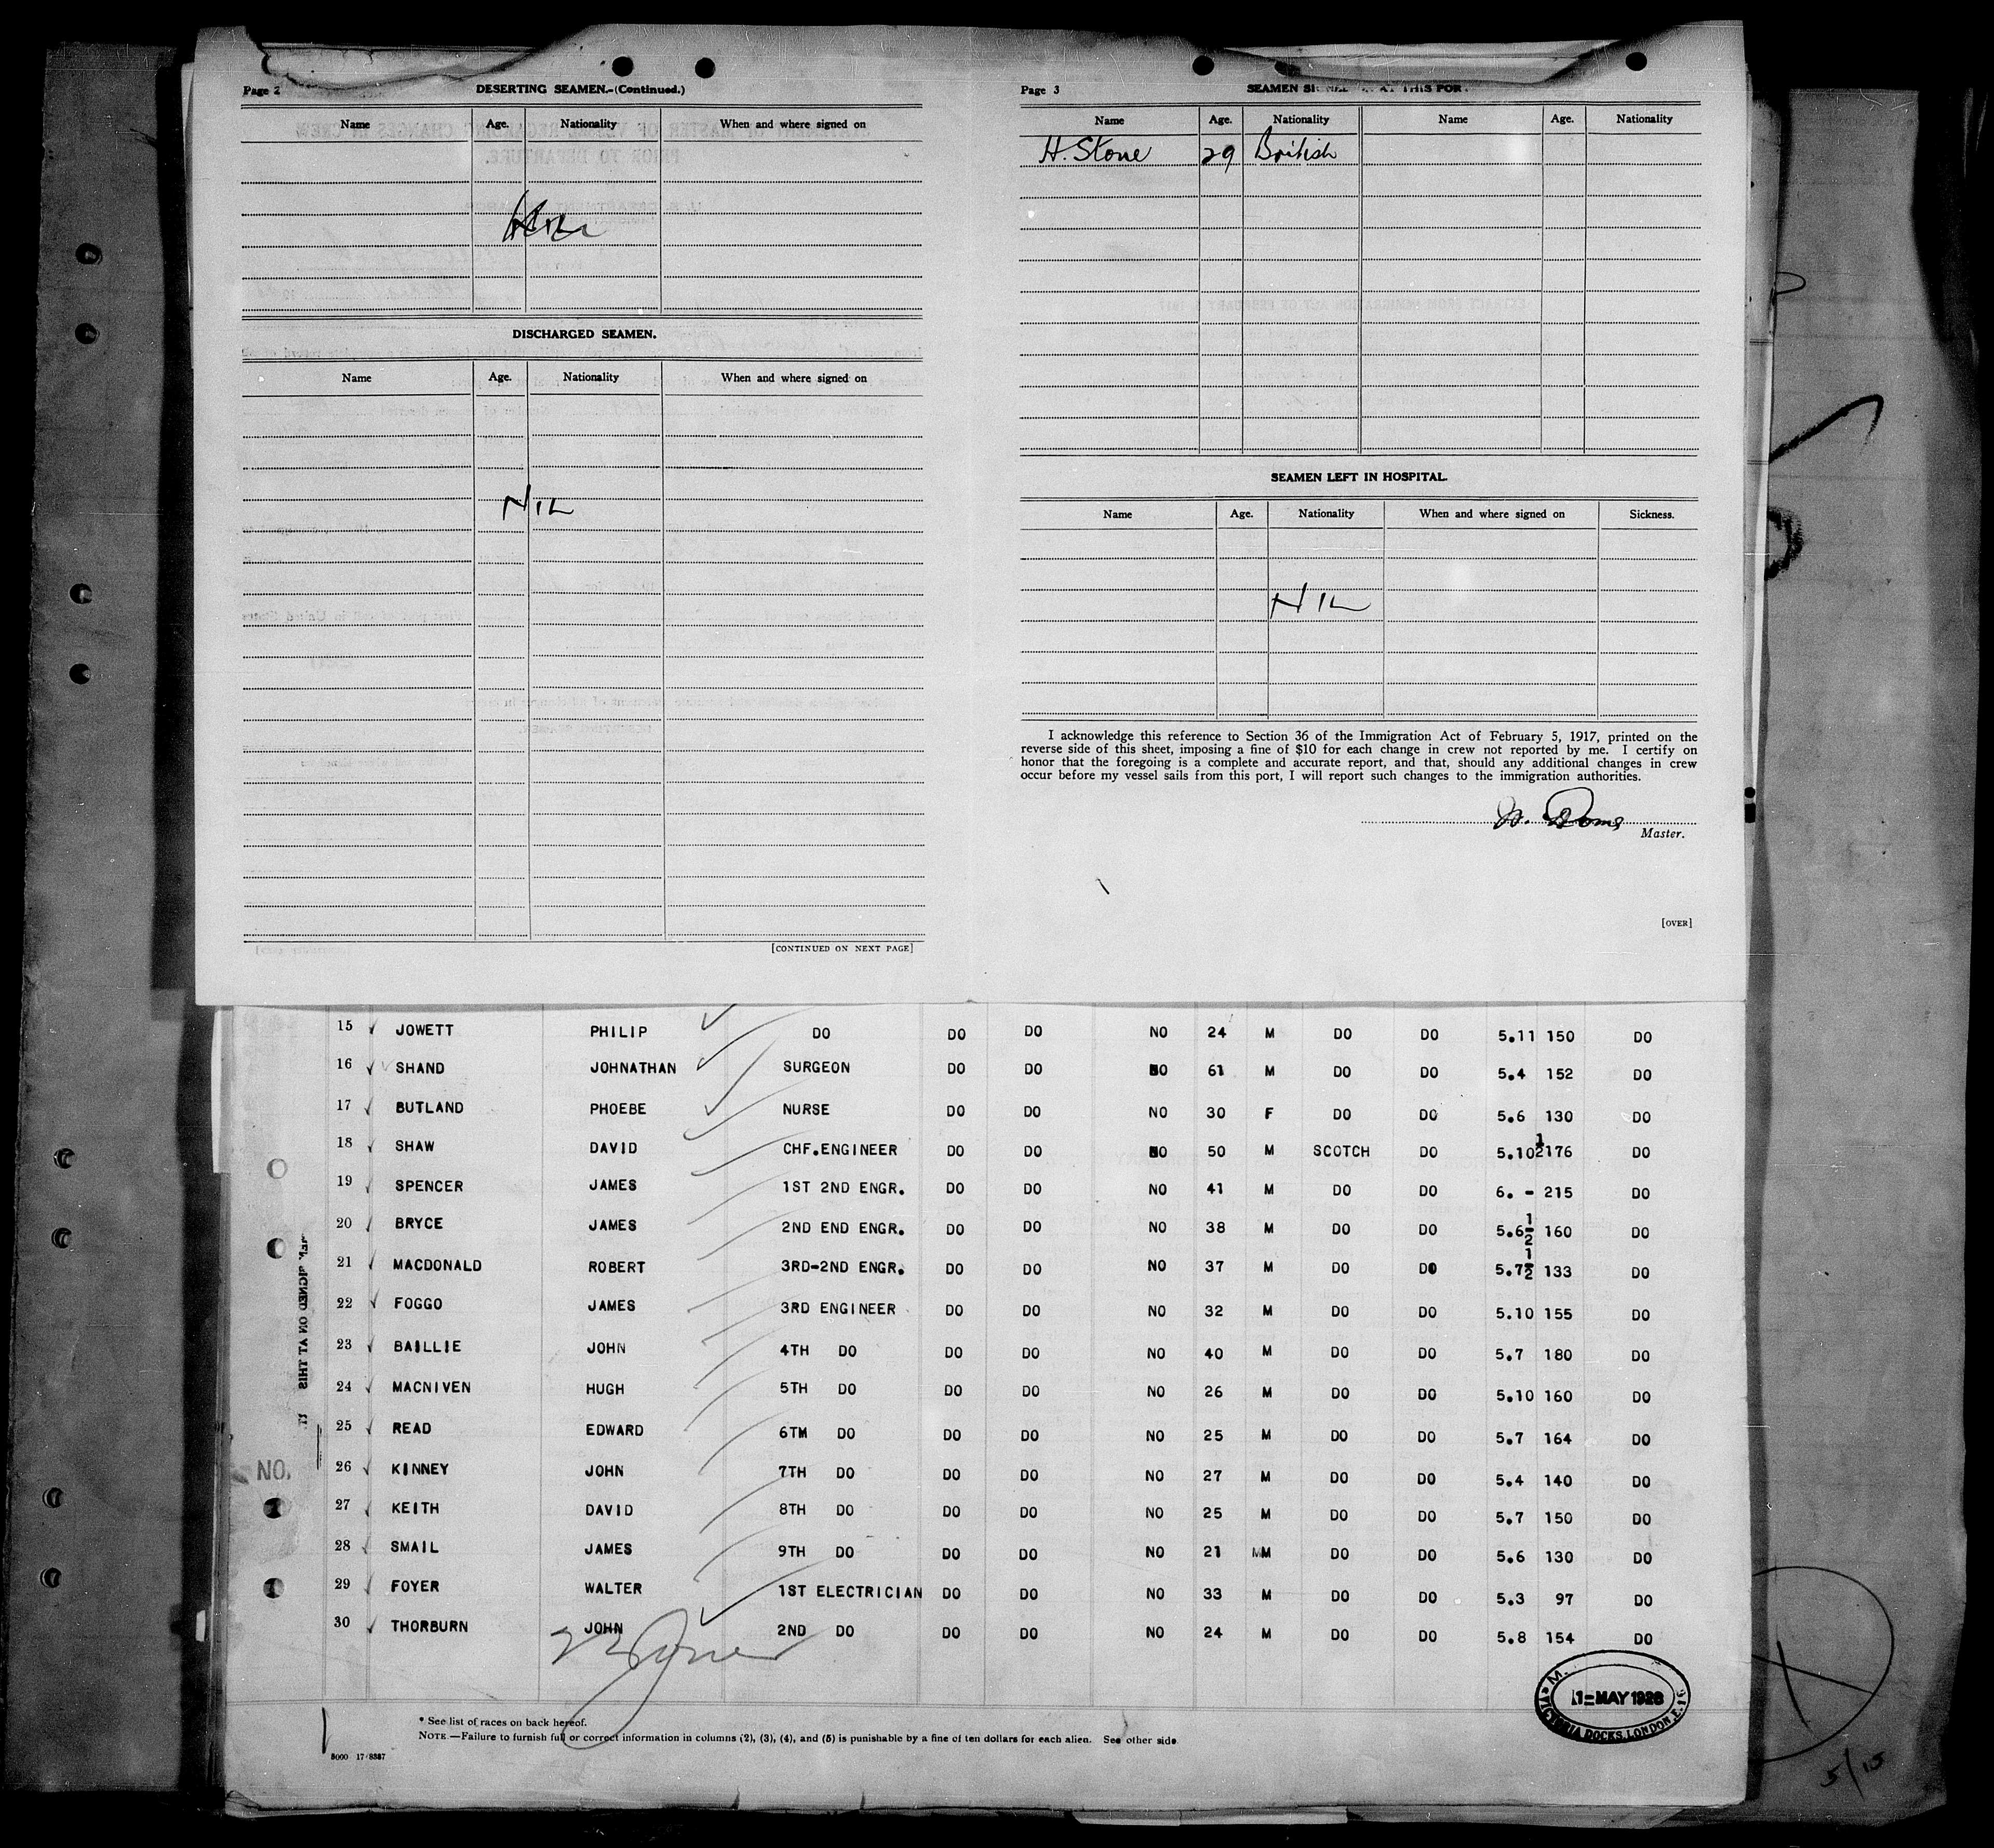 Page 2 DESERTING SEAMEN.-(Continued.)
Name Age. Nationality When and where signed on
NIL
DISCHARGED SEAMEN.
Name Age. Nationality When and where signed on
NIL
[CONTINUED ON NEXT PAGE]
Page 3 SEAMEN SIGNED AT THIS PORT
Name Age. Nationality Name Age. Nationality
H. Stone 29 British
SEAMEN LEFT IN HOSPITAL.
Name Age. Nationality When and where signed on Sickness.
NIL
I acknowledge this reference to Section 36 of the Immigration Act of February 5, 1917, printed on the
reverse side of this sheet, imposing a fine of $10 for each change in crew not reported by me. I certify on
honor that the foregoing is a complete and accurate report, and that, should any additional changes in crew
occur before my vessel sails from this port, I will report such changes to the immigration authorities.
Master.
[OVER]
15 JOWETT PHILIP DO DO DO NO 24 M DO DO 5.11 150 DO
16 SHAND JOHNATHAN SURGEON DO DO NO 61 M DO DO 5.4 152 DO
17 BUTLAND PHOEBE NURSE DO DO NO 30 F DO DO 5.6 130 DO
18 SHAW DAVID CHF.ENGINEER DO DO NO 50 M SCOTCH DO 5.10½ 176 DO
19 SPENCER JAMES 1ST 2ND ENGR. DO DO NO 41 M DO DO 6. - 215 DO
20 BRYCE JAMES 2ND END ENGR. DO DO NO 38 M DO DO 5.6½ 160 DO
21 MACDONALD ROBERT 3RD-2ND ENGR. DO DO NO 37 M DO DO 5.7½ 133 DO
22 FOGGO JAMES 3RD ENGINEER DO DO NO 32 M DO DO 5.10 155 DO
23 BAILLIE JOHN 4TH DO DO DO NO 40 M DO DO 5.7 180 DO
24 MACNIVEN HUGH 5TH DO DO DO NO 26 M DO DO 5.10 160 DO
25 READ EDWARD 6TM DO DO DO NO 25 M DO DO 5.7 164 DO
NO.
26 KINNEY JOHN 7TH DO DO DO NO 27 M DO DO 5.4 140 DO
27 KEITH DAVID 8TH DO DO DO NO 25 M DO DO 5.7 150 DO
28 SMAIL JAMES 9TH DO DO DO NO 21 MM DO DO 5.6 130 DO
29 FOYER WALTER 1ST ELECTRICIAN DO DO NO 33 M DO DO 5.3 97 DO
30 THORBURN JOHN 2ND DO DO DO NO 24 M DO DO 5.8 154 DO
1-MAY 1928
VICTORIA DOCKS, LONDON, E.16
* See list of races on back hereof.
NOTE.—Failure to furnish full or correct information in columns (2), (3), (4), and (5) is punishable by a fine of ten dollars for each alien. See other side
5000 17/8387
5/15